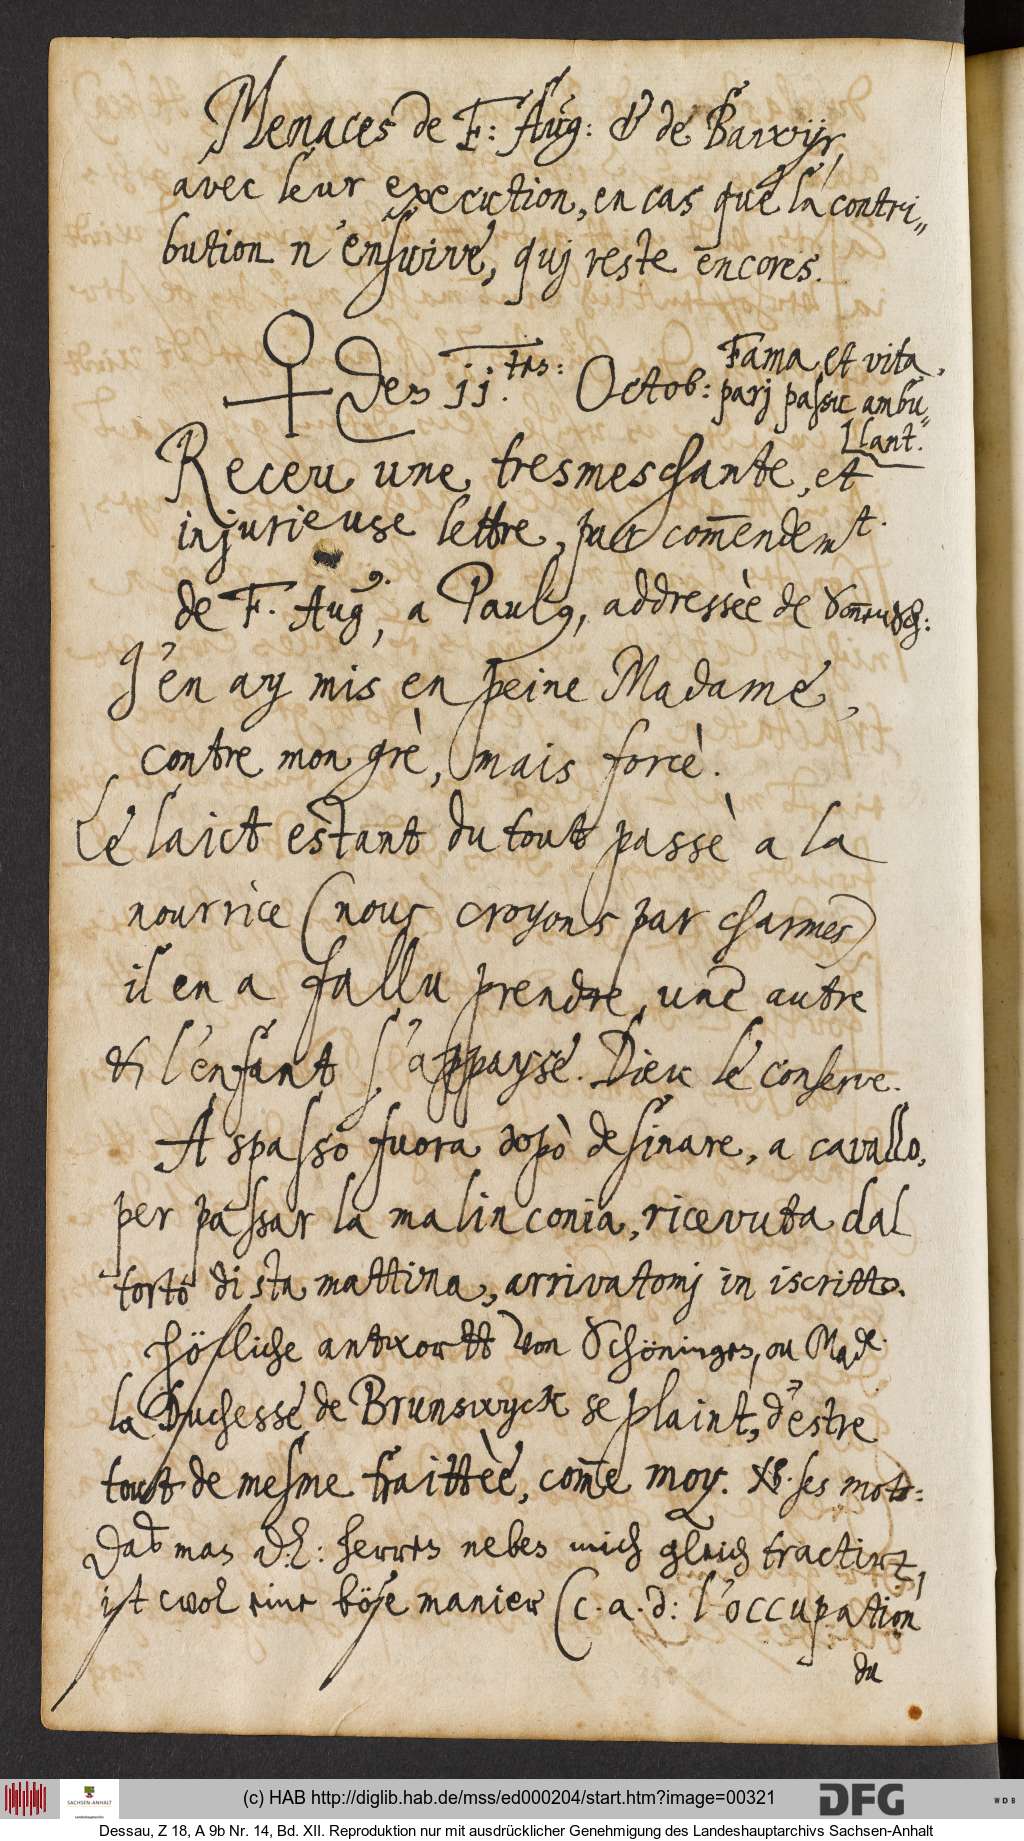 Menaces de F: Aug: & de Barwijr,
avec leur execution, en cas que la contri„
bution n'ensuive, quj reste encores.
♀ den 11.ten: Octob:
Fama et vita,
parj passu ambu„
lant.
Receu une tresmeschante, et
injurieuse lettre, par com̄endem.t
de F. Aug, a Paulg, addressèe de
J'en ay mis en peine Madame,
contre mon grè, mais forcè.
Le laict estant du tout passè a la
nourrice (nous croyons par charmes)
il en a fallu prendre, une autre
& l'enfant s'appaysè. Dieu le conserve.
A spasso fuora dopò desinare, a cavallo,
per passar la malinconia, ricevuta dal
torto di sta mattina, arrivatomj in iscritto.
Höfliche antwortt von Schöningen, ou Mad.e
la Duchesse de Brunswyck se plaint, d'estre
tout de mesme traittèe, com̄e moy. ses mots:
Daß man E. L: herren neben mich gleich tractirt,
ist wol eine böse manier (c. a. d: l'occupation
du
(c) HAB http://diglib.hab.de/mss/ed000204/start.htm?image=00321
SACHSEN-ANHALT
Landeshauptarchiv
DFG
WDB
Dessau, Z 18, A 9b Nr. 14, Bd. XII. Reproduktion nur mit ausdrücklicher Genehmigung des Landeshauptarchivs Sachsen-Anhalt